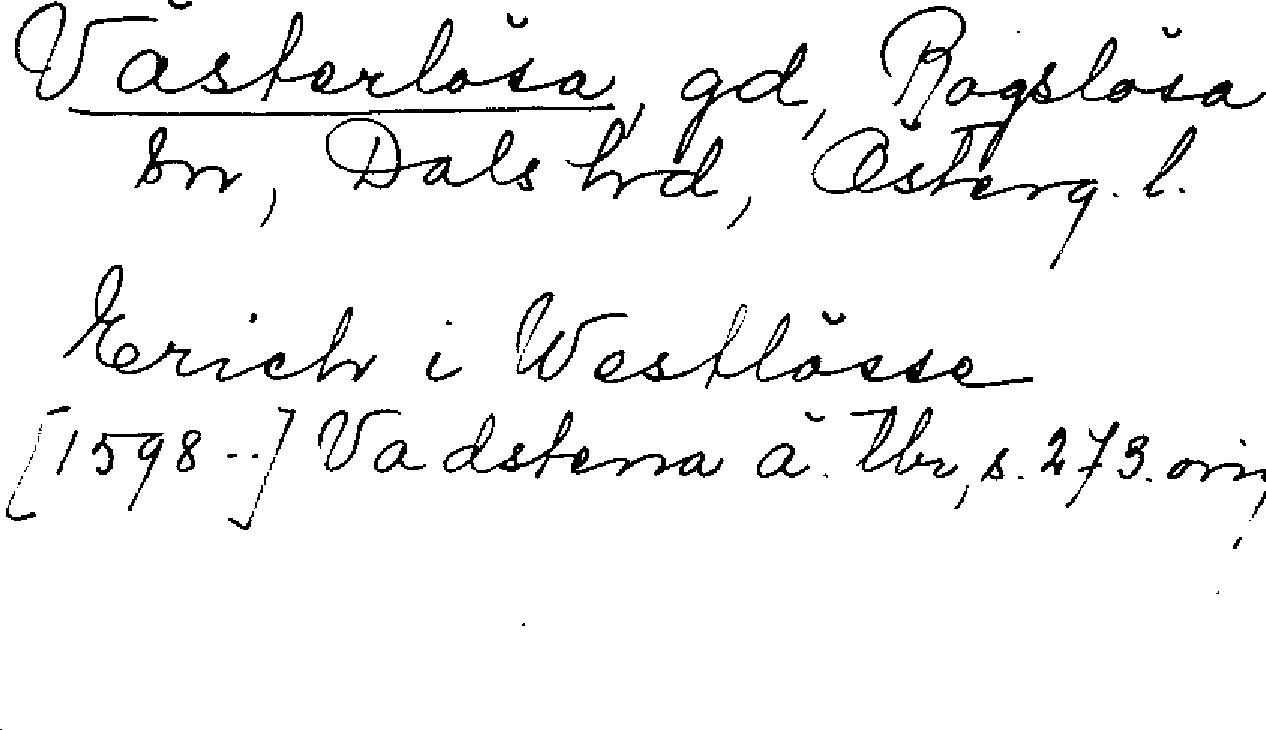 Västerlösa, gd, Rogslösa
sn, Dals hrd, Österg. l.
Erich i Westlösse
[1598--] Vadstena ä. tbr, s. 273. orig.